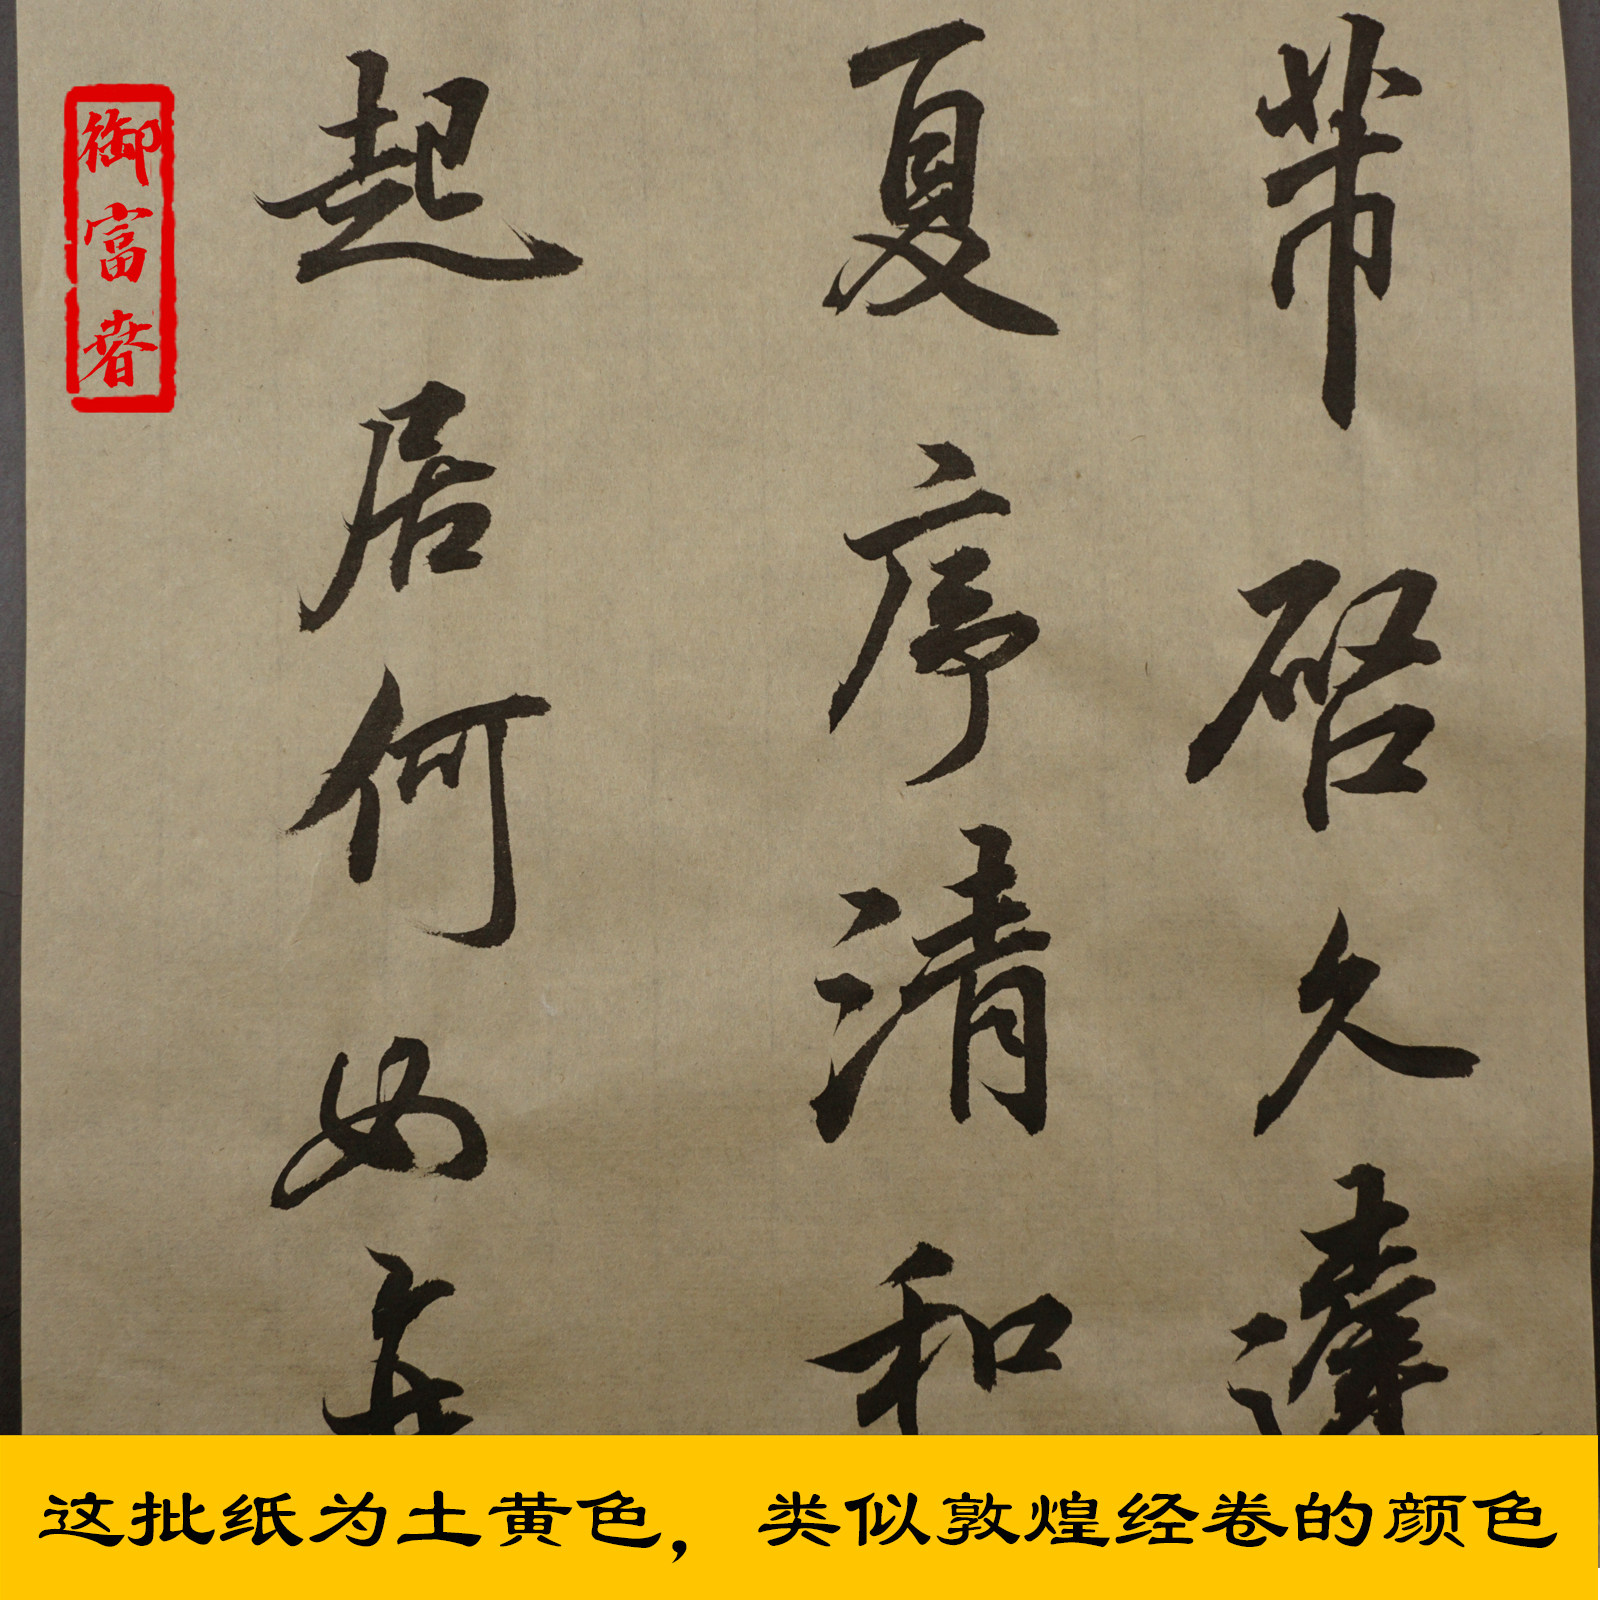 芾启久違
夏序清和
起居何如
御富春
这批纸为土黄色，类似敦煌经卷的颜色